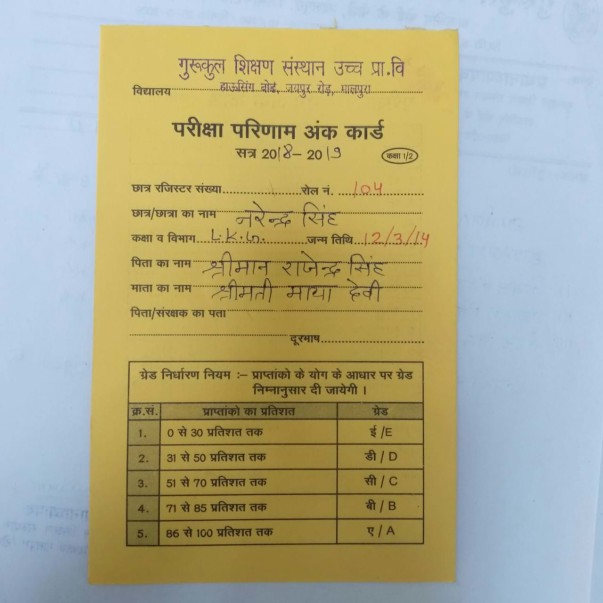 गुरूकुल शिक्षण संस्थान उच्च प्रा.वि
विद्यालय हाऊसिंग बोर्ड, जयपुर रोड़, मालपुरा
परीक्षा परिणाम अंक कार्ड
सत्र 2018-2019 कक्षा 1/2
छात्र रजिस्टर संख्या.................... रोल नं. ...104
छात्र/छात्रा का नाम नरेन्द्र सिंह
कक्षा व विभाग....L.K.G........ जन्म तिथि..12/3/14
पिता का नाम श्रीमान राजेन्द्र सिंह
माता का नाम श्रीमती माया देवी
पिता/संरक्षक का पता....................
....................दूरभाष....................
ग्रेड निर्धारण नियम :– प्राप्तांको के योग के आधार पर ग्रेड
निम्नानुसार दी जायेगी ।
क्र.सं. प्राप्तांको का प्रतिशत ग्रेड
1. 0 से 30 प्रतिशत तक ई / E
2. 31 से 50 प्रतिशत तक डी / D
3. 51 से 70 प्रतिशत तक सी / C
4. 71 से 85 प्रतिशत तक बी / B
5. 86 से 100 प्रतिशत तक ए / A